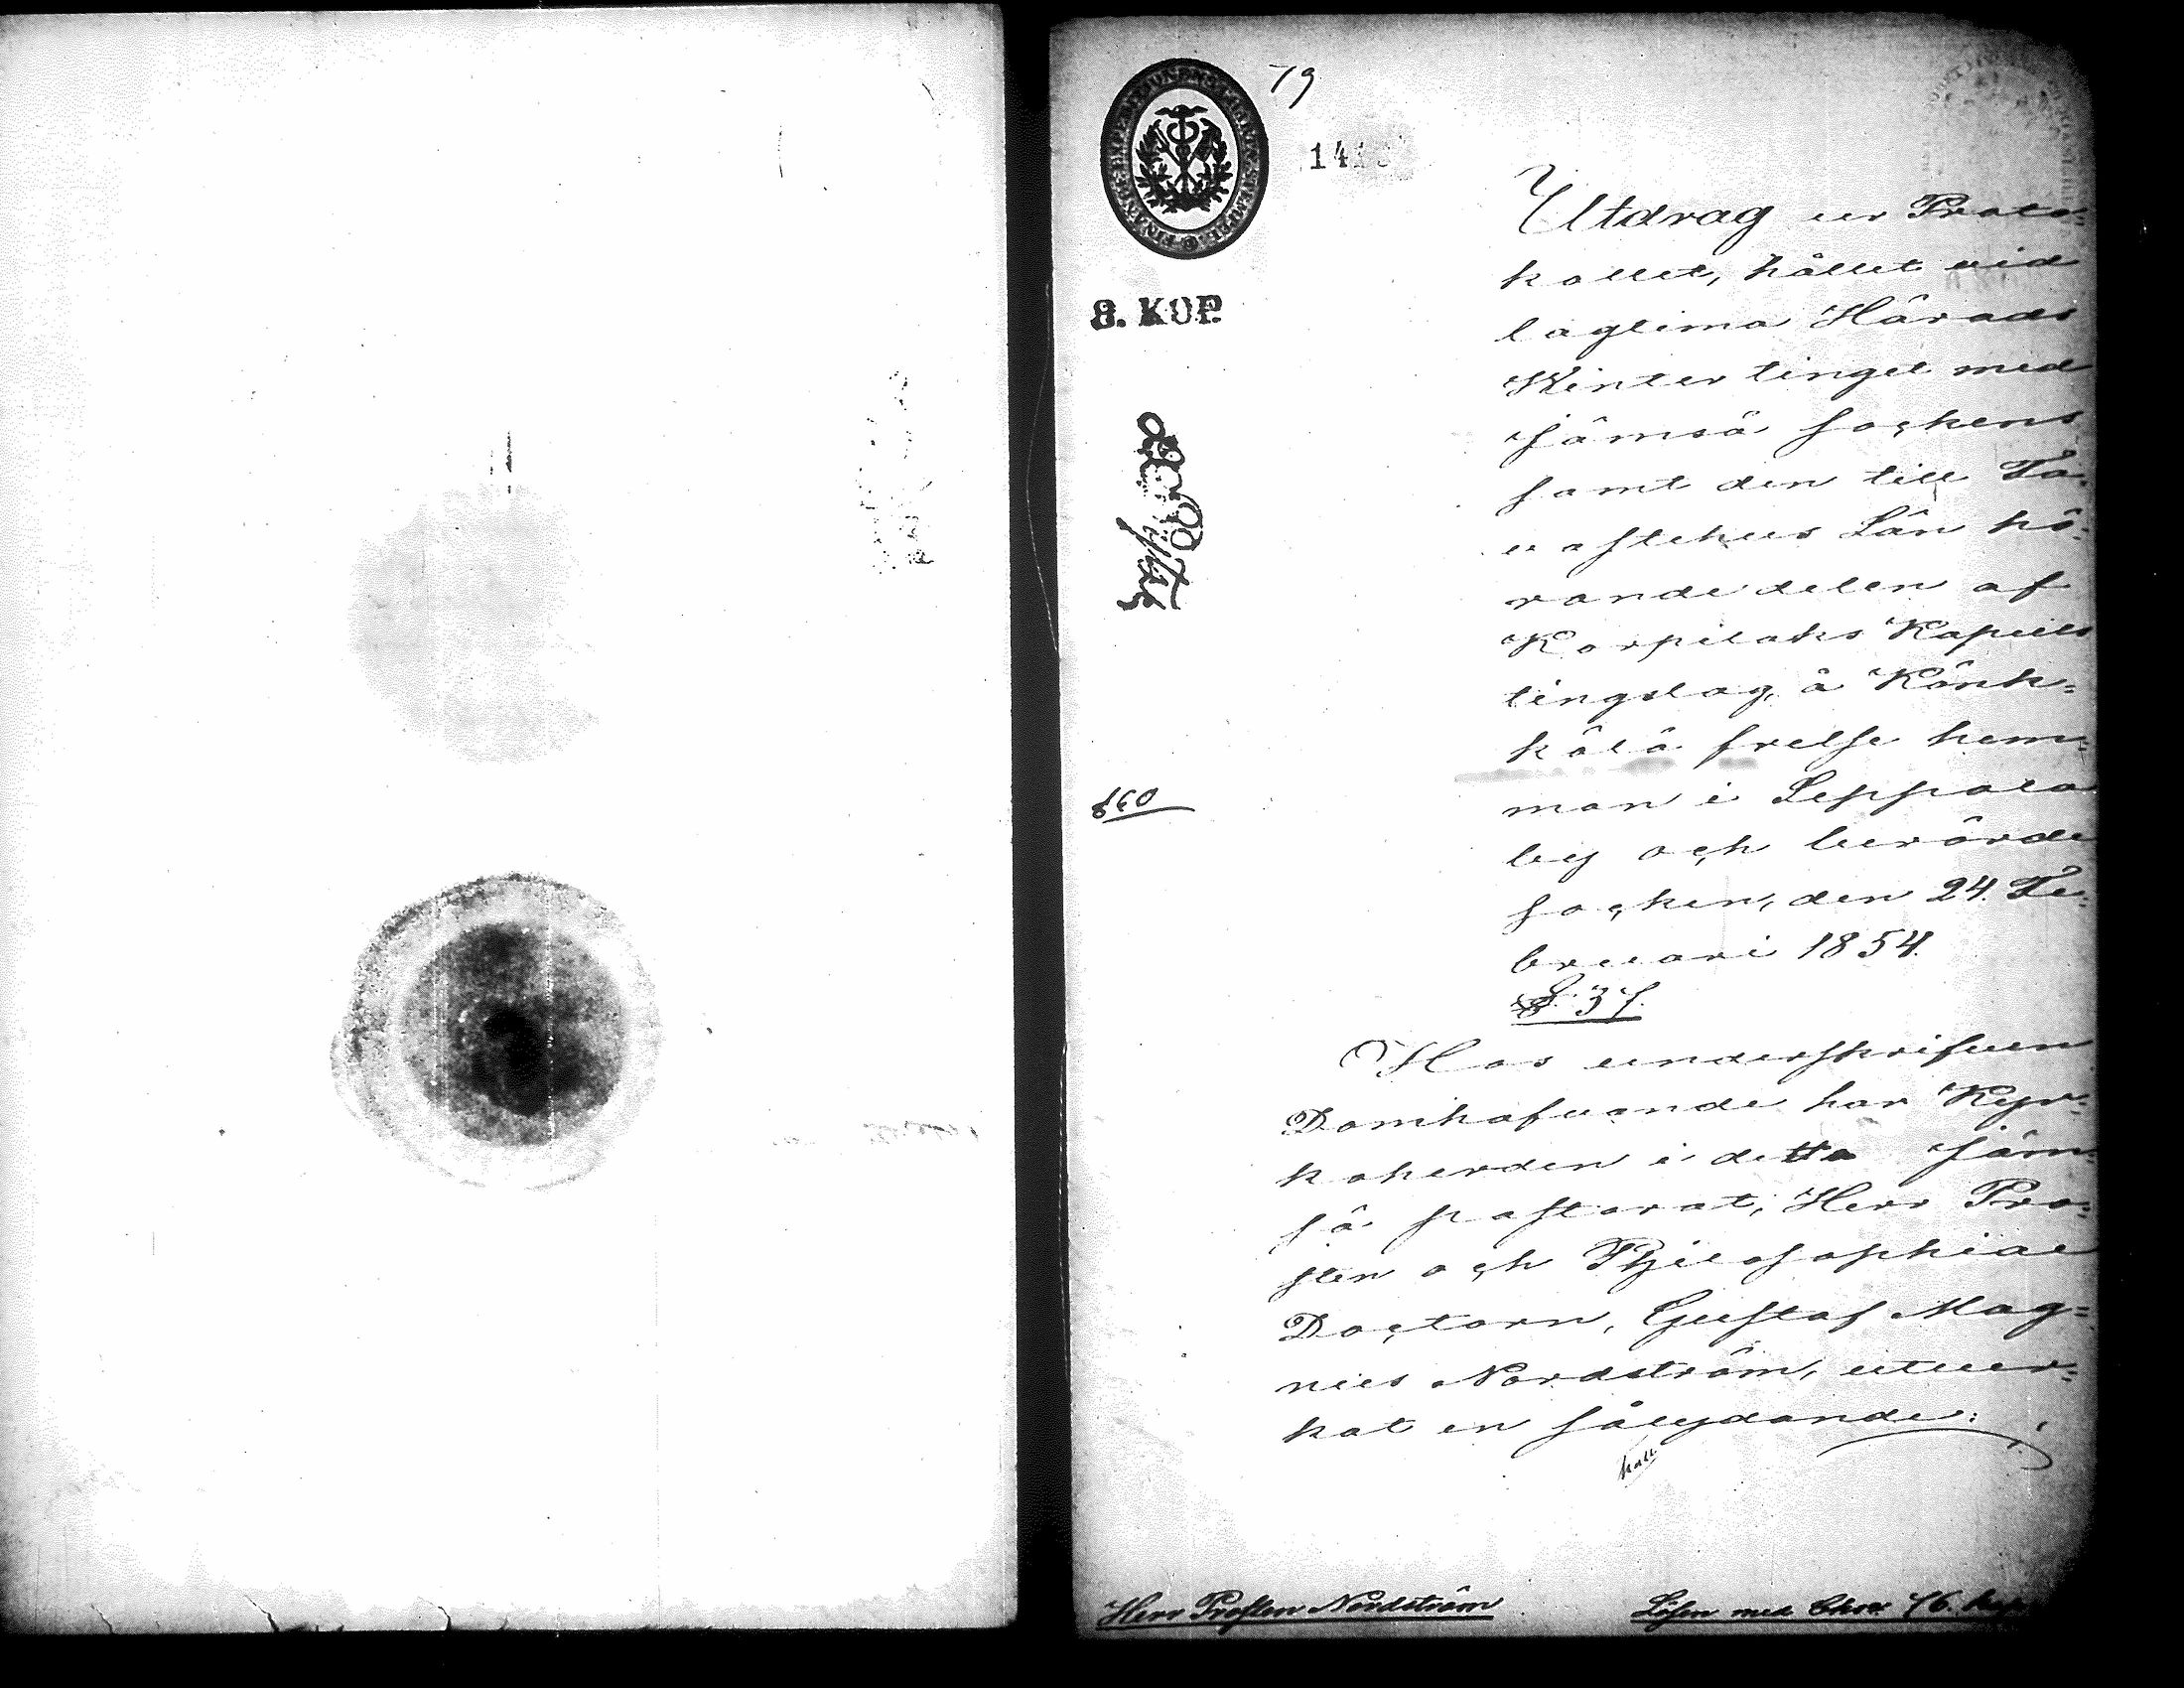 79
141
8. KOP.
Utdrag ur Proto-
kollet, hållet vid
lagtima Härads
Wintertinget med
Jämsä Sockens
samt den till Ta-
vastehus Län hö-
rande delen af
Korpilaks Kapells
tingslag, å Könk-
kölä frelse hem-
man i Seppola
by och berörde
socken, den 24. Fe-
bruari 1854.
§. 37.
Hos underskrifven
Domhafvande har Kyr-
koherden i detta Jäm-
sä pastorat, Herr Pro-
sten och Philosophiae
Doctorn, Gustaf Mag-
nus Nordström, utver-
kat en sålydande:
Herr Prosten Nordström Lösen med Char. 76. kop